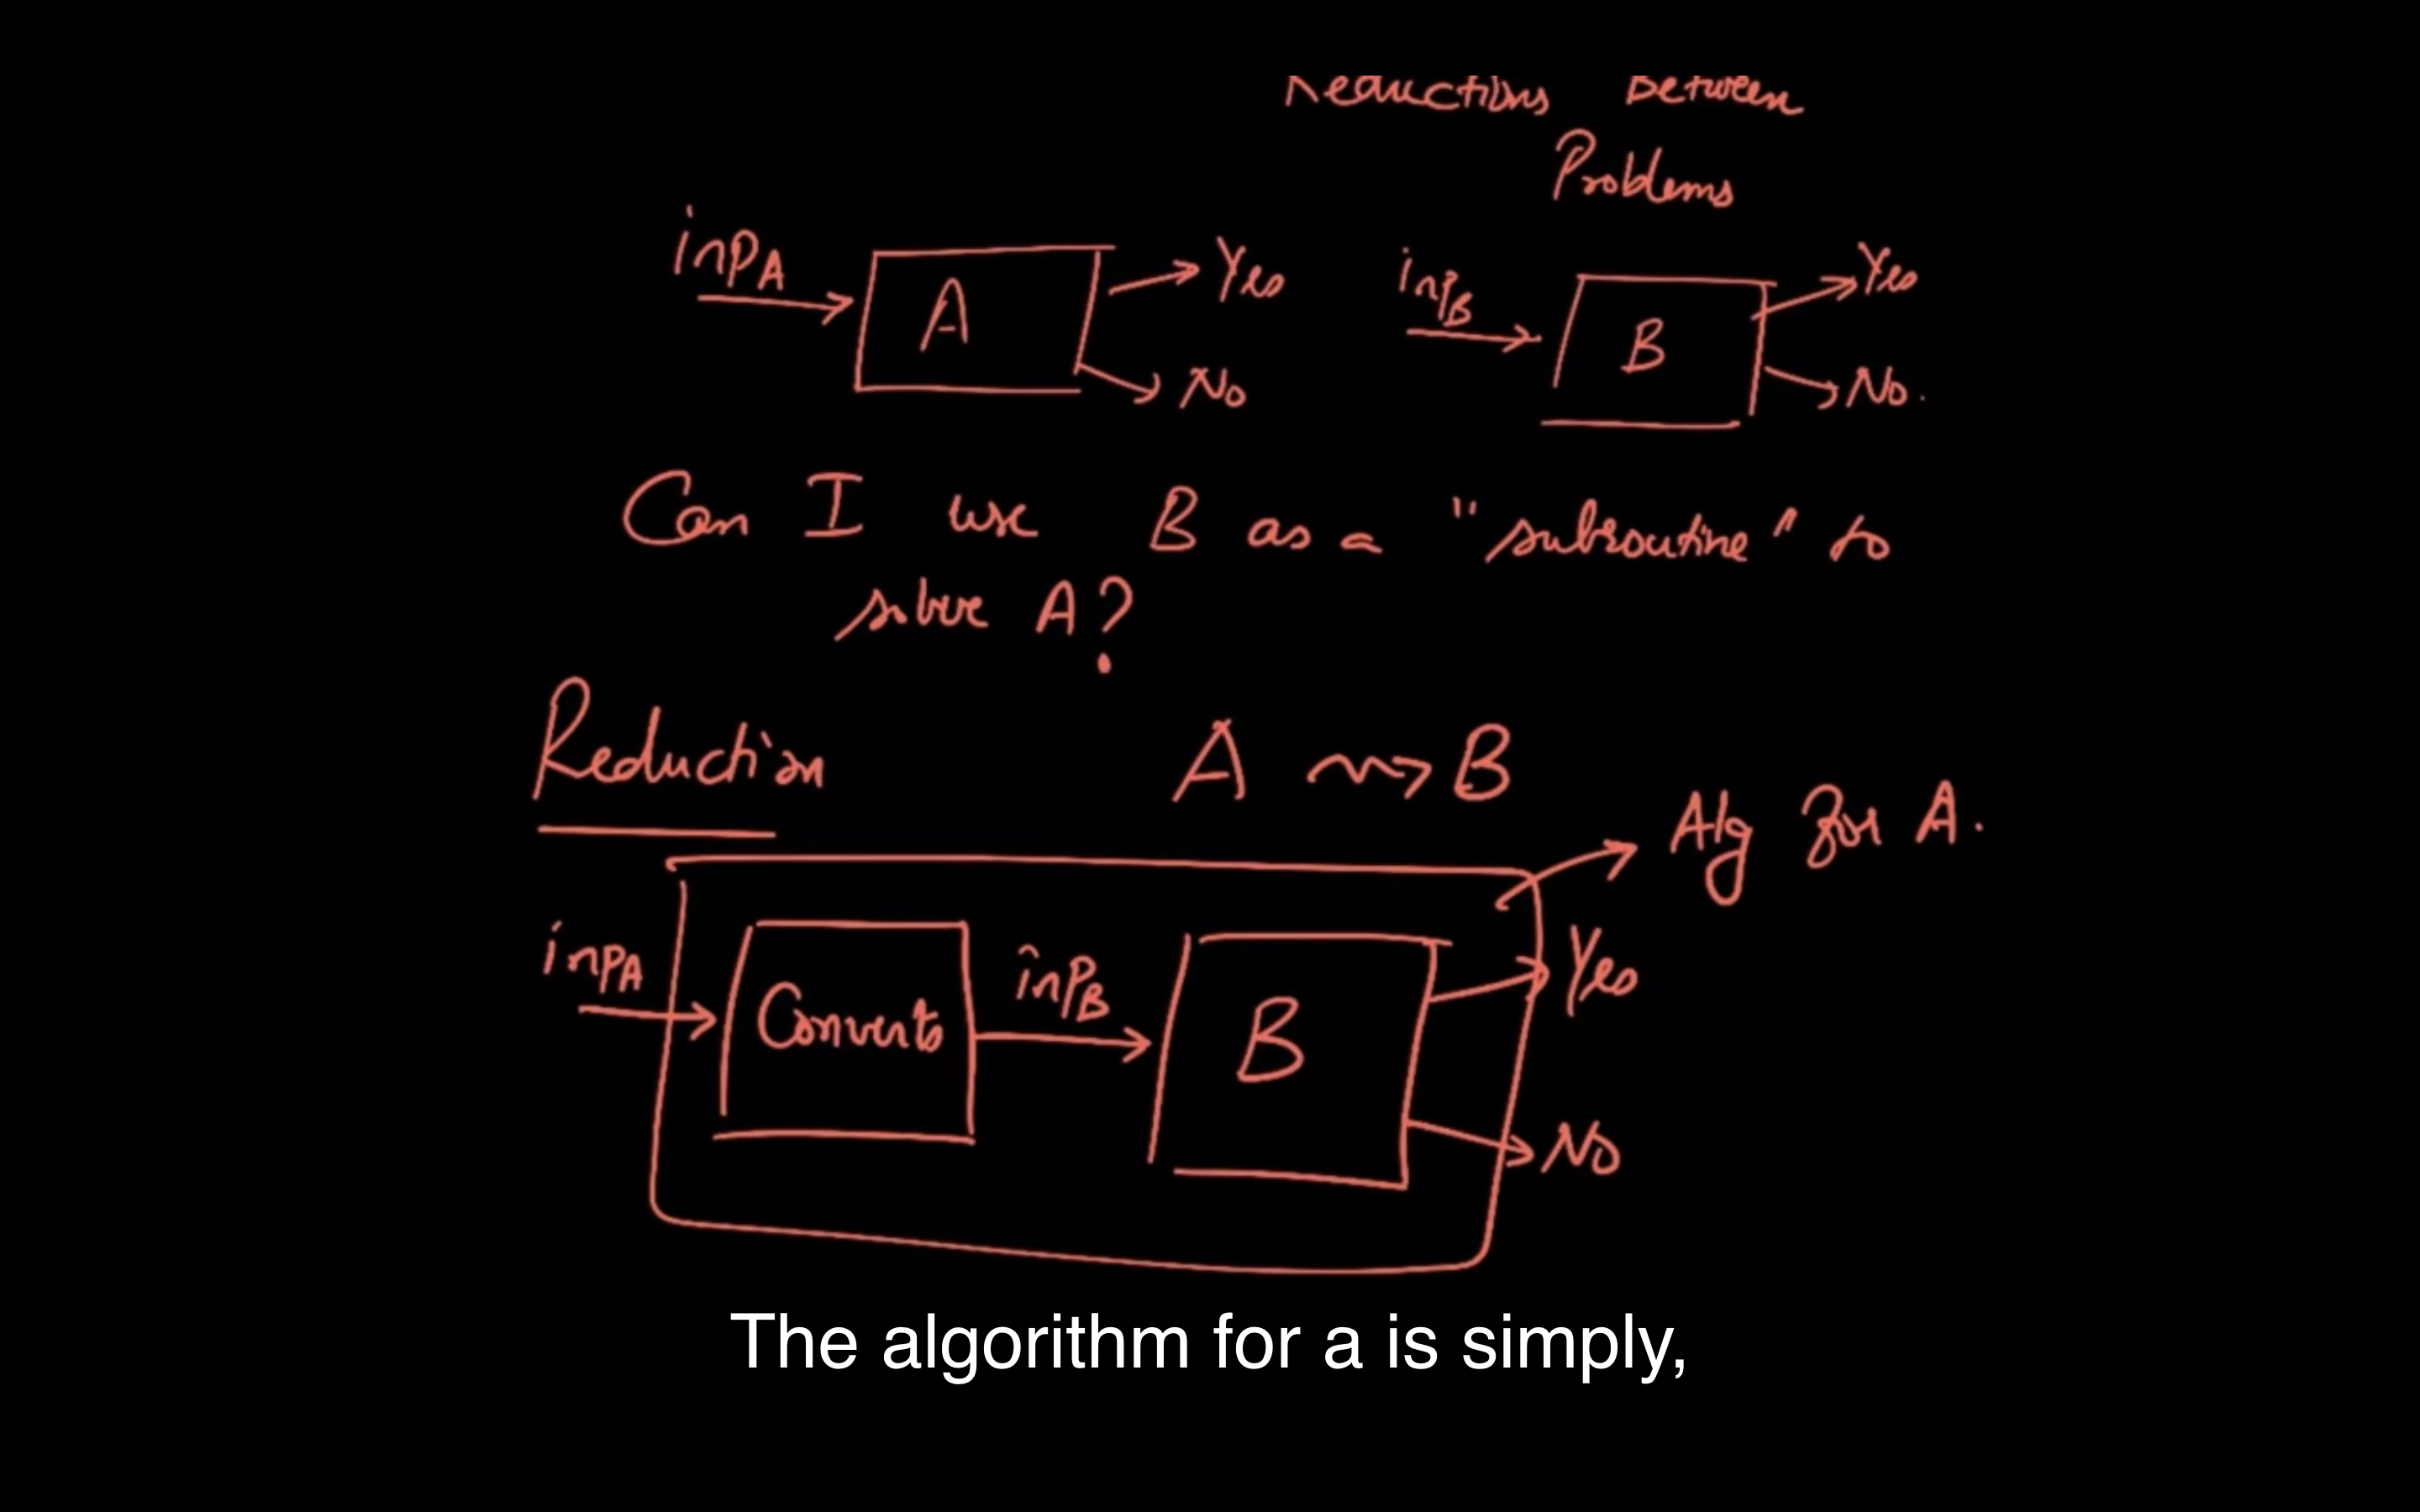 Reductions Between
Problems
inpA
A
Yes
No
inpB
B
Yes
No.
Can I use B as a "subroutine" to
solve A?
Reduction
A ~~> B
Alg for A.
inpA
Converts
inpB
B
Yes
No
The algorithm for a is simply,